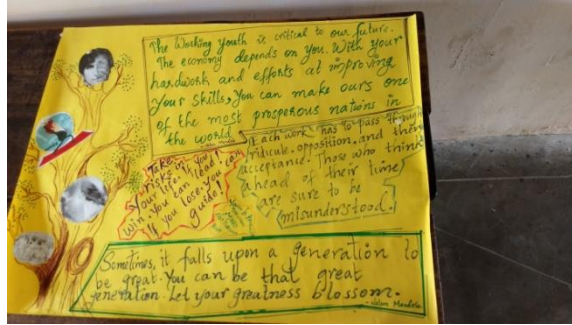 The Working Youth is critical to our future.
The economy depends on you. With your
hardwork and efforts at improving
your skills, you can make ours one
of the most prosperous nations in
the world
Each work has to pass through
ridicule, opposition, and then
acceptance. Those who think
ahead of their time
are sure to be
misunderstood.
Take
risks in
your life. If you
win, you can lead!
If you lose, you can
guide!
Sometimes, it falls upon a generation to
be great. You can be that great
generation. Let your greatness blossom.
- Nelson Mandela